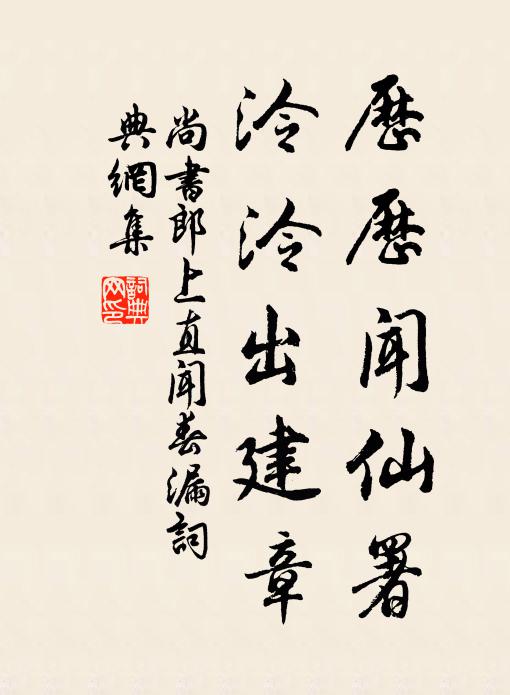 歷歷聞仙署
泠泠出建章
尚書郎上直聞春漏詞
典網集
詞典
网印